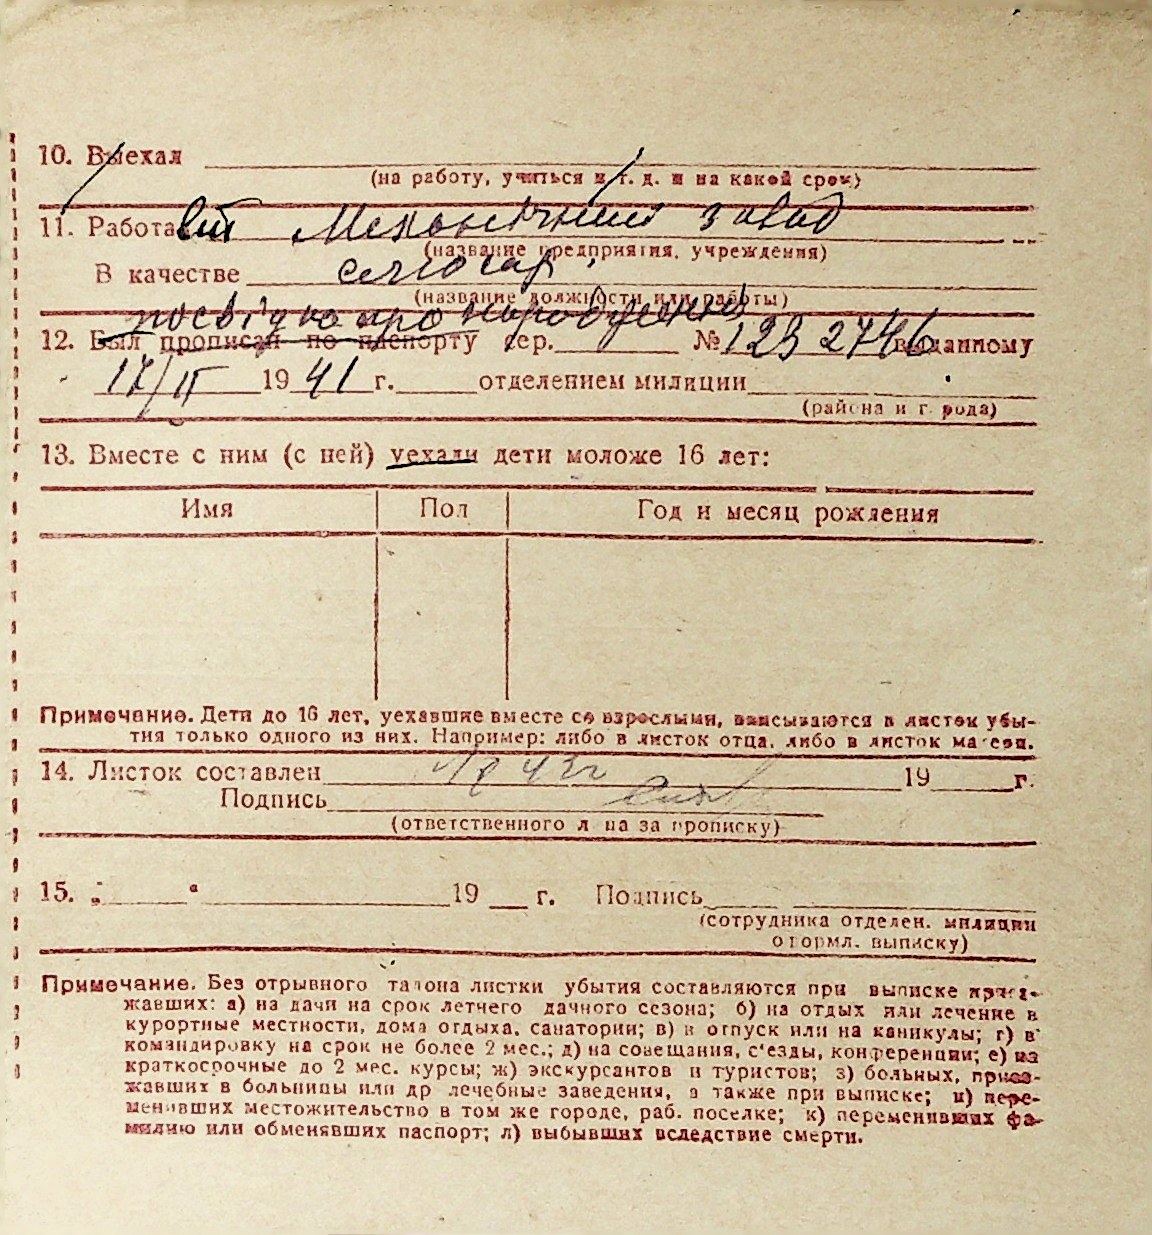 10. Выехал
(на работу, учиться и т. д. и на какой срок)
11. Работает Механічний завод
(название предприятия, учреждения)
В качестве слюсар
(название должности или работы)
посвідка про народження
12. Был прописан по паспорту сер. № 123 2746 выданному
17/II 1941 г. отделением милиции
(района и города)
13. Вместе с ним (с ней) уехали дети моложе 16 лет:
Имя Пол Год и месяц рождения
Примечание. Дети до 16 лет, уехавшие вместе со взрослыми, вписываются в листок убы-
тия только одного из них. Например: либо в листок отца, либо в листок матери.
14. Листок составлен 43 г 19 г.
Подпись
(ответственного лица за прописку)
15. „ “ 19 г. Подпись
(сотрудника отделен. милиции
оформл. выписку)
Примечание. Без отрывного талона листки убытия составляются при выписке приез-
жавших: а) на дачи на срок летнего дачного сезона; б) на отдых или лечение в
курортные местности, дома отдыха, санатории; в) в отпуск или на каникулы; г) в
командировку на срок не более 2 мес.; д) на совещания, с'езды, конференции; е) на
краткосрочные до 2 мес. курсы; ж) экскурсантов и туристов; з) больных, приез-
жавших в больницы или др лечебные заведения, а также при выписке; и) пере-
менивших местожительство в том же городе, раб. поселке; к) переменивших фа-
милию или обменявших паспорт; л) выбывших вследствие смерти.